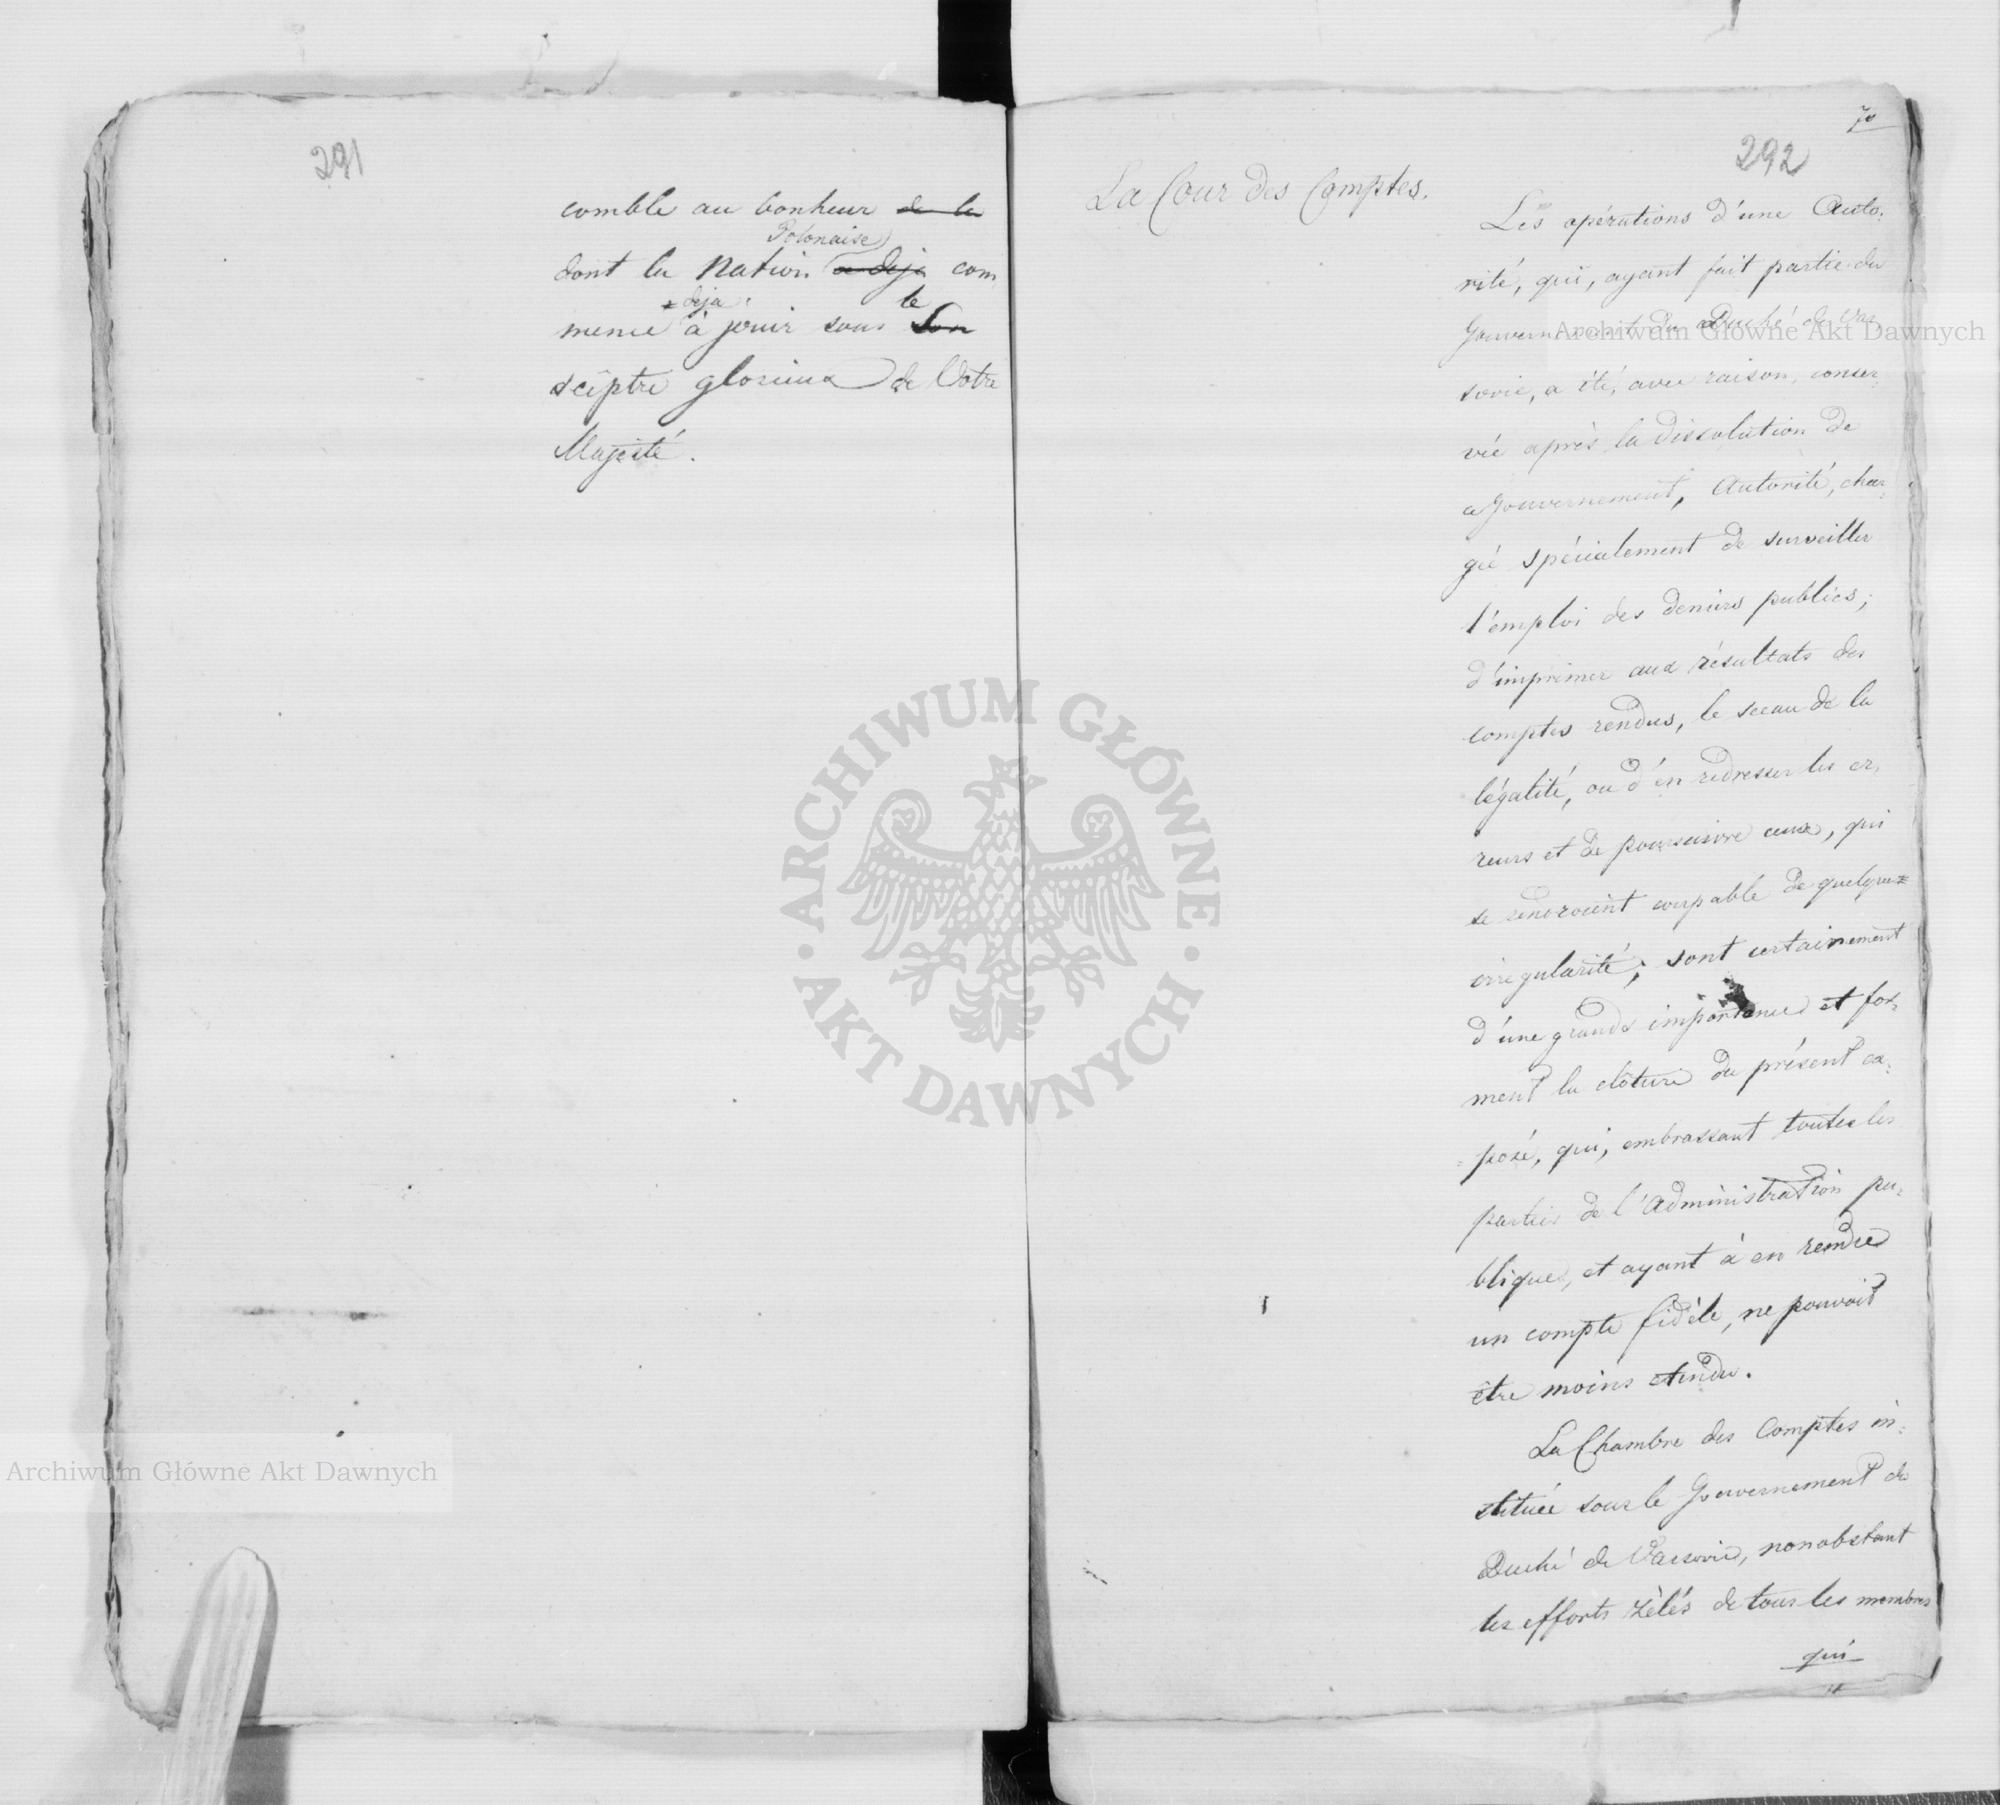 291
comble au bonheur de la
Polonaise
dont la Nation a deja com
deja le
mence à jouir sous Son
sceptre glorieux de Votre
Majesté.
70
292
La Cour des Comptes.
Les opérations d'une Auto-
rité, qui, ayant fait partie du
Gouvernement du Duché de Var-
sovie, a été, avec raison, conser-
vée après la dissolution de
ce Gouvernement, Autorité, char-
gée spécialement de surveiller
l'emploi des deniers publics,
d'imprimer aux résultats des
comptes rendus, le sceau de la
légalité, ou d'en redresser les er-
reurs et de poursuivre ceux, qui
se rendroient coupable de quelque
irrégularité, sont certainement
d'une grande importance et for-
ment la clôture du présent ex-
posé, qui, embrassant toutes les
parties de l'Administration pu-
blique, et ayant à en rendre
un compte fidèle, ne pouvoit
être moins etendu.
La Chambre des Comptes in-
stituée sous le Gouvernement du
Duché de Varsovie, nonobstant
les efforts zèlés de tous les membres
qui
Archiwum Główne Akt Dawnych
ARCHIWUM GŁÓWNE AKT DAWNYCH
Archiwum Główne Akt Dawnych